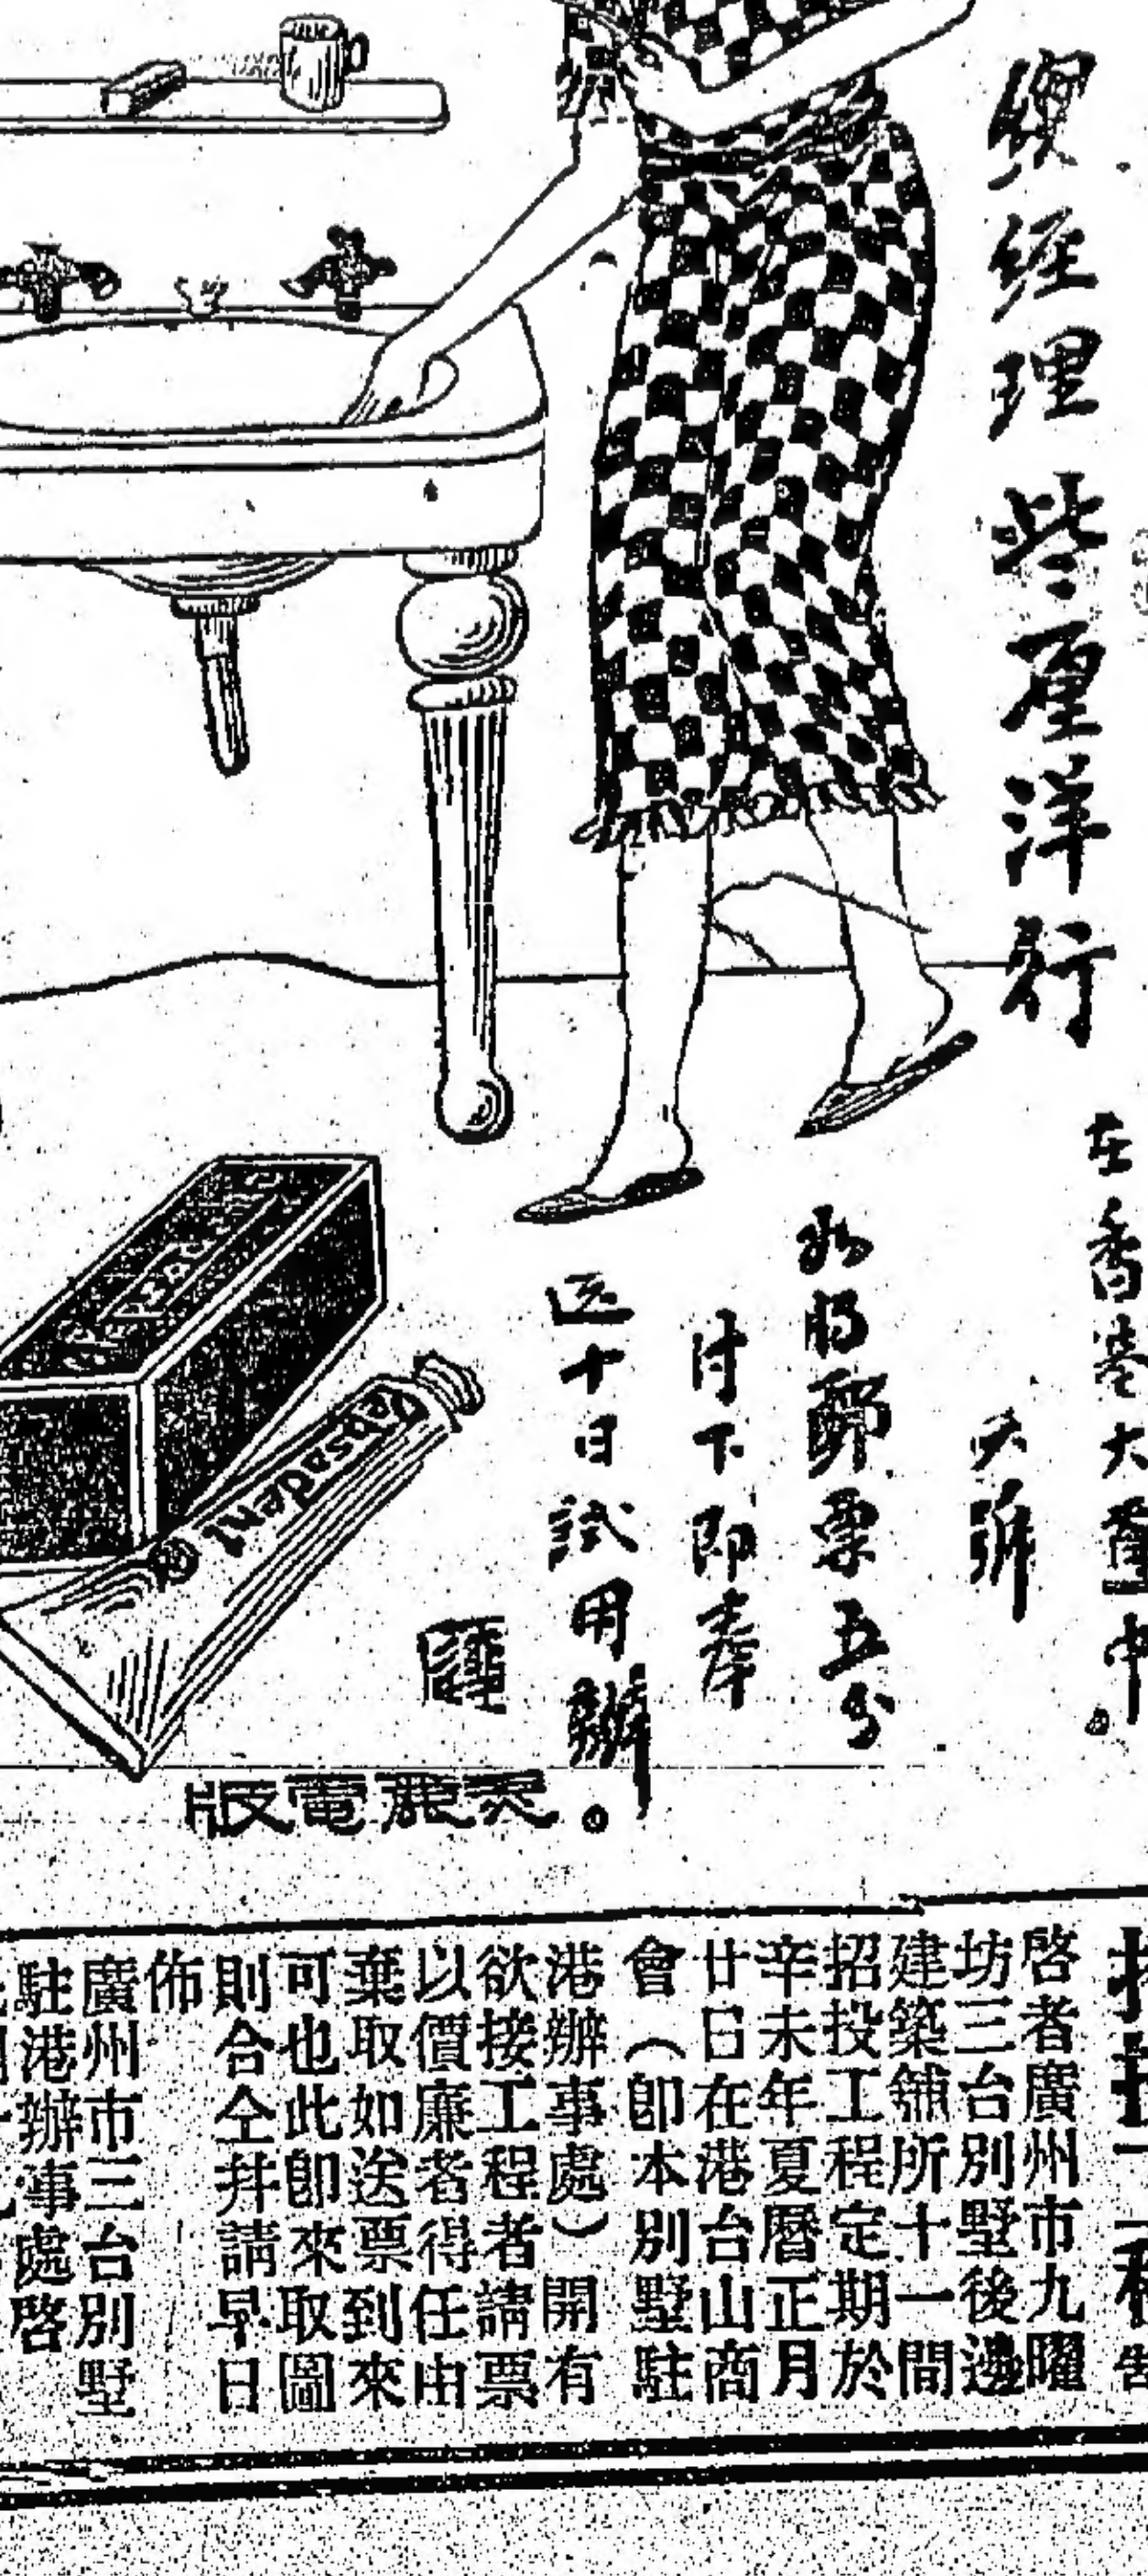 總經理 些厘洋行
在香港大 中
大
如將郵票五分
付下即奉
送十日試用辦
Pepsodent
版電麗美
啓者廣州市九曜
坊三台別墅後邊
建築舖所十一間
招投工程定期於
辛未年夏曆正月
廿日在港台山商
會（卽本別墅駐
港辦事處）開有
欲接工程者請票
以價廉者得任由
棄取如送票到來
可也此卽來取圖
則合仝幷請早日
佈
廣州市三台別墅
駐港辦事處啓